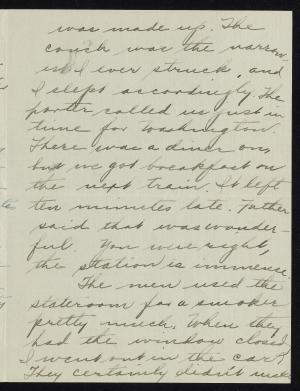 was made up. The
couch was the narrow-
est I ever struck, and
I slept accordingly. The
porter called us just in
time for Washington.
There was a diner on,
but we got breakfast on
the next train. It left
ten minutes late. Father
said that was wonder-
ful. You were right,
the station is immense.
The men used the
stateroom for a smoker
pretty much. When they
had the window closed
I went out in the car.
They certainly didn't